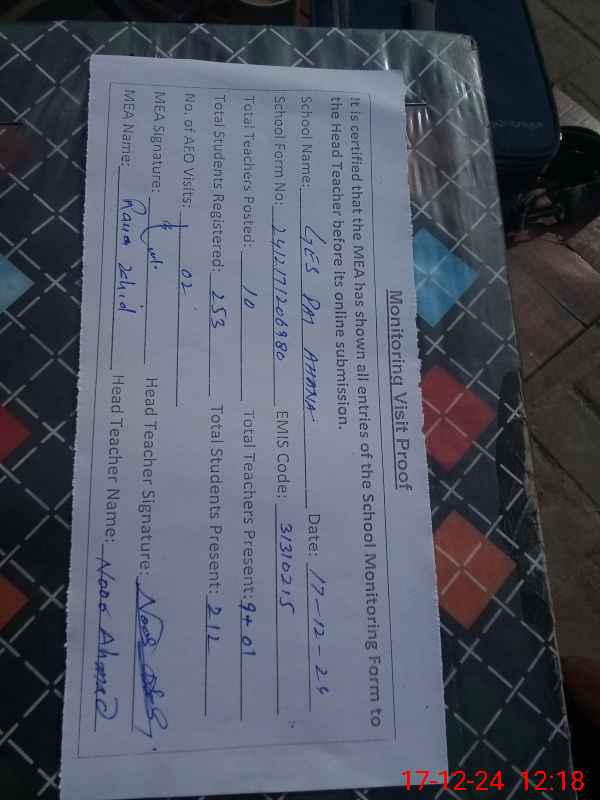 Monitoring Visit Proof
It is certified that the MEA has shown all entries of the School Monitoring Form to
the Head Teacher before its online submission.
School Name: GES PAI AHATA Date: 17-12-24
School Form No: 2412171206980 EMIS Code: 31310215
Total Teachers Posted: 10 Total Teachers Present: 9+01
Total Students Registered: 253 Total Students Present: 212
No. of AEO Visits: 02
MEA Signature: Head Teacher Signature:
MEA Name: Rana Zahid Head Teacher Name: Noor Ahmad
17-12-24 12:18